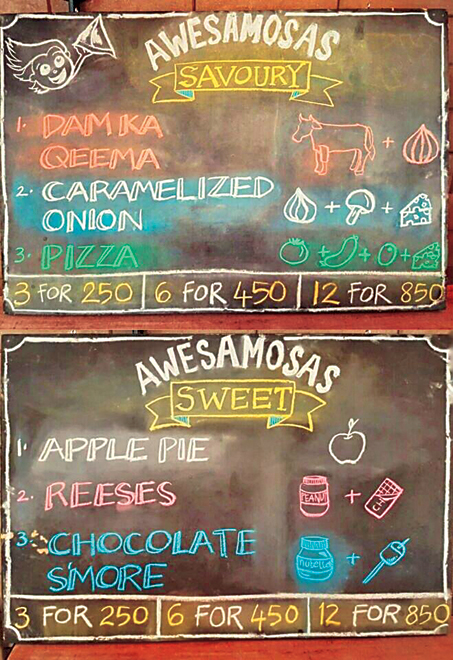 AWESAMOSAS
SAVOURY
1. DAM KA
QEEMA
2. CARAMELIZED
ONION
3. PIZZA
3 FOR 250 | 6 FOR 450 | 12 FOR 850
AWESAMOSAS
SWEET
1. APPLE PIE
2. REESES
PEANUT
3. CHOCOLATE
S'MORE
nutella
3 FOR 250 | 6 FOR 450 | 12 FOR 850